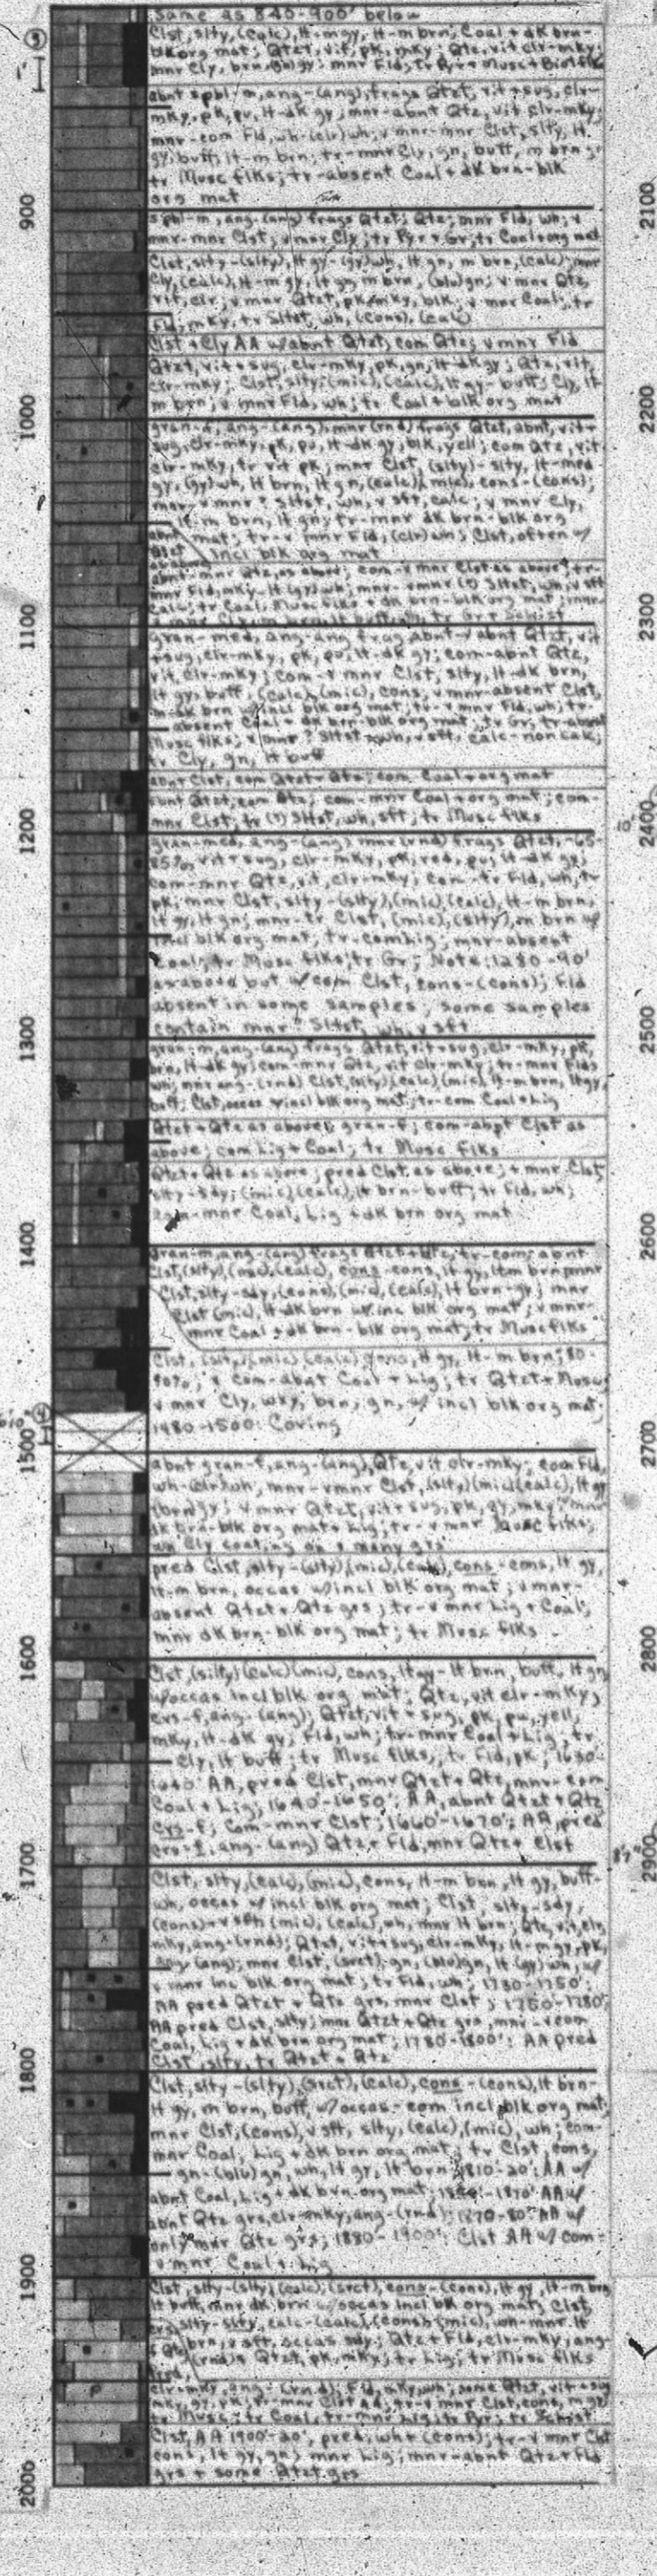 Same as 840-900' below
Clst, slty, (calc), lt-m gy, lt-m brn; Coal + dk brn-
blk org mat; Qtzt, vit, pk, mky; Qtz, vit clr-mky;
mnr Cly, brn, mnr Fld; tr Pyr + Musc + Biot flks
abnt spbl-m, ang-(ang), frags Qtzt, vit + sug, clr-
mky, pk, pu, lt-dk gy; mnr-abnt Qtz, vit clr-mky;
mnr-com Fld, wh-(clr) wh; v mnr-mnr Clst, slty, lt
gy, buff, lt-m brn; tr-mnr Cly, gn, buff, m brn
tr Musc flks; tr-absent Coal + dk brn-blk
org mat
900
spbl-m, ang-(ang) frags Qtzt; Qtz; mnr Fld, wh; v
mnr-mnr Clst; v mnr Cly; tr Pyr + Gr; tr Coal + org mat
Clst, slty-(slty), lt gy-(gy) wh, lt gn, m brn, (calc); mnr
Cly, (calc), lt-m gy, lt gn, m brn, (blu) gn; v mnr Qtz,
vit, clr; v mnr Qtzt, pk, mky, blk; v mnr Coal; tr
Fld, mky, tr Sltst, wh, (cons), (calc)
Clst + Cly AA w/abnt Qtzt, com Qtz; v mnr Fld
Qtzt, vit + sug, clr-mky, pk, gn, lt-dk gy; Qtz, vit,
clr-mky; Clst, slty, (mic), (calc), lt gy-buff; Cly, lt-
m brn; v mnr Fld, wh; tr Coal + blk org mat
1000
ang-(ang), mnr (rnd) frags Qtzt, abnt, vit +
sug, clr-mky, pk, pu, lt-dk gy, blk, yell; com Qtz, vit
clr-mky, tr vit pk; mnr Clst, (slty)-slty, lt-med
gy, (gy) wh, lt brn, lt gn, (calc), (mic), cons-(cons);
mnr-v mnr ? Sltst, wh, v sft, calc; v mnr Cly,
lt-m brn, lt gn; tr-mnr dk brn-blk org
mat; tr-v mnr Fld, (clr) wh; Clst, often w/
incl blk org mat
abnt-mnr Qtz, as above; com-v mnr Clst as above; tr-
mnr Fld, mky-lt (gy) wh; mnr-vmnr (?) Sltst, wh, v sft
calc; tr Coal, Musc flks + dk brn-blk org mat; mnr-
1100
gran-med, ang-ang frag abnt-v abnt Qtzt, vit
+ sug, clr-mky, pk, pu, lt-dk gy; com-abnt Qtz,
vit, clr-mky; com-v mnr Clst, slty, lt-dk brn,
lt gy, buff, (calc), (mic), cons, v mnr-absent Clst,
m-dk brn w/incl blk org mat; tr-v mnr Fld, wh; tr-
absent Coal + dk brn-blk org mat, tr Gr; tr-absent
Musc flks; v mnr ? Sltst, wh, v sft, calc-non calc;
tr Cly, gn, lt buff
abnt Clst, com Qtzt + Qtz; com Coal + org mat
abnt Qtzt; com Qtz; com-mnr Coal + org mat; com-
mnr Clst, tr (?) Sltst, wh, sft; tr Musc flks
1200
gran-med, ang-(ang) mnr (rnd) frags Qtzt, -65-
85%, vit + sug, clr-mky, pk, red, pu, lt-dk gy;
com-mnr Qtz, vit, clr-mky; com-tr Fld, wh, tr
pk; mnr Clst, slty-(slty), (mic), (calc), lt-m brn,
lt gy, lt gn; mnr-tr Clst, (mic), (slty), m brn w/
incl blk org mat; tr-com Lig; mnr-absent
Coal; tr Musc flks; tr Gr; Note: 1280-90'
as above but w/com Clst, cons-(cons); Fld
absent in some samples; some samples
contain mnr ? Sltst, wh, v sft
1300
gran-m, ang-(ang) frags Qtzt, vit + sug, clr-mky, pk,
brn, lt-dk gy; com-mnr Qtz, vit clr-mky; tr-mnr Fld,
wh; mnr ang-(rnd) Clst, (slty), (calc), (mic), lt-m brn, lt gy,
buff; Clst, occas w/incl blk org mat; tr-com Coal + Lig
Qtzt + Qtz as above, gran-f; com-abnt Clst as
above; com Lig + Coal; tr Musc flks
Qtzt + Qtz as above; pred Clst as above; + mnr Clst,
slty-sdy; (mic), (calc), lt brn-buff; tr Fld, wh;
com-mnr Coal, Lig + dk brn org mat
1400
gran-m, ang-(ang) frags Qtzt + Qtz, tr-com; abnt
Clst, (slty), (mic), (calc), cons-cons, lt gy, lt-m brn; mnr
Clst, slty-sdy, (cons), (mic), (calc), lt brn-gy; mnr
Clst (mic), lt-dk brn w/inc blk org mat; v mnr-
mnr Coal + dk brn-blk org mat; tr Musc flks
Clst, (slty), (mic), (calc), cons, lt gy, lt-m brn; 80-
90%; v com-abnt Coal + Lig; tr Qtzt + Musc;
v mnr Cly, wxy, brn, gn, w/ incl blk org mat;
1480-1500: Coring
1500
abnt gran-f, ang-(ang), Qtz, vit clr-mky; com Fld,
wh-(clr) wh; mnr-vmnr Clst, (slty), (mic), (calc), lt gy
(brn) gy; v mnr Qtzt, vit + sug, pk, gy, mky; mnr
dk brn-blk org mat + Lig; tr-v mnr Musc flks;
wh Cly coating on v many grs
pred Clst, slty-(slty), (mic), (calc), cons-cons, lt gy,
lt-m brn, occas w/incl blk org mat; v mnr-
absent Qtzt + Qtz grs; tr-v mnr Lig + Coal;
mnr dk brn-blk org mat; tr Musc flks
1600
Clst, (silty), (calc), (mic), cons, lt gy-lt brn, buff, lt gn
w/occas incl blk org mat; Qtz, vit clr-mky,
crs-f, ang-(ang); Qtzt, vit + sug, pk, pu, yell,
mky, lt-dk gy; Fld, wh; tr-mnr Coal + Lig; tr
Cly, lt buff; tr Musc flks; tr Fld, pk; 1630-
1640: AA, pred Clst, mnr Qtzt + Qtz, mnr-com
Coal + Lig; 1640'-1650': AA, abnt Qtzt + Qtz
crs-f; com-mnr Clst; 1660'-1670': AA, pred
crs-f, ang-(ang) Qtz + Fld, mnr Qtz + Clst
1700
Clst, slty, (calc), (mic), cons, lt-m brn, lt gy, buff-
wh, occas w/incl blk org mat; Clst, slty-sdy,
(cons)-v sft, (mic), (calc), wh, mnr lt brn; Qtz, vit, clr-
mky, ang-(rnd); Qtzt, vit + sug, clr-mky, lt-m gy, pk,
ang-(ang); mnr Clst, (srct), gn, (blu) gn, lt (gy) wh, w/
v mnr inc blk org mat; tr Fld, wh; 1730-1750':
AA pred Qtzt + Qtz grs, mnr Clst; 1750-1780':
AA pred Clst, slty; mnr Qtzt + Qtz grs, mnr-v com
Coal, Lig + dk brn org mat; 1780-1800': AA pred
Clst, slty, tr Qtzt + Qtz
1800
Clst, slty-(slty), (srct), (calc), cons-(cons), lt brn-
lt gy, m brn, buff, w/occas-com incl blk org mat;
mnr Clst, (cons), v sft, slty, (calc), (mic), wh; com-
mnr Coal, Lig + dk brn org mat; tr Clst, cons,
gn-(blu) gn, wh, lt gy, lt brn; 1810-20': AA w/
abnt Coal, Lig + dk brn org mat; 1870' AA w/
abnt Qtz grs, clr-mky, ang-(rnd); 1870-80' AA w/
only mnr Qtz grs; 1880-1900': Clst AA w/ com-
v mnr Coal + Lig
1900
Clst, slty-(slty), (calc), (srct), cons-(cons), lt gy, lt-m brn,
lt buff, mnr dk brn w/occas incl blk org mat; Clst,
slty-slty, calc-(calc), (cons), (mic), wh-mnr lt
brn, v sft, occas sdy; Qtz + Fld, clr-mky, ang-
(rnd); Qtzt, pk, mky; tr Lig; tr Musc flks
clr-mky, ang-(rnd); Fld, mky, wh; some Qtzt, vit + sug
mky, gy, pk; tr-mnr Clst AA; tr-v mnr Clst, cons, m gy;
tr Musc; tr Coal, tr-mnr Lig; tr Pyr; tr Schist
Clst, AA 1900-20', pred, wh + (cons); tr-v mnr Clst
cons, lt gy, gn; mnr Lig; mnr-abnt Qtz + Fld
grs + some Qtzt grs
2000
2100
2200
2300
2400
2500
2600
2700
2800
2900